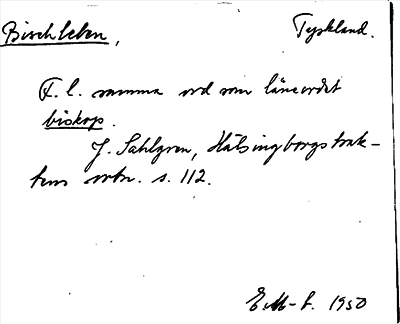 Bischleben, Tyskland.
F. l. samma ord som låneordet
biskop.
J. Sahlgren, Hälsingborgstrak-
tens ortn. s. 112.
E.M-t. 1950